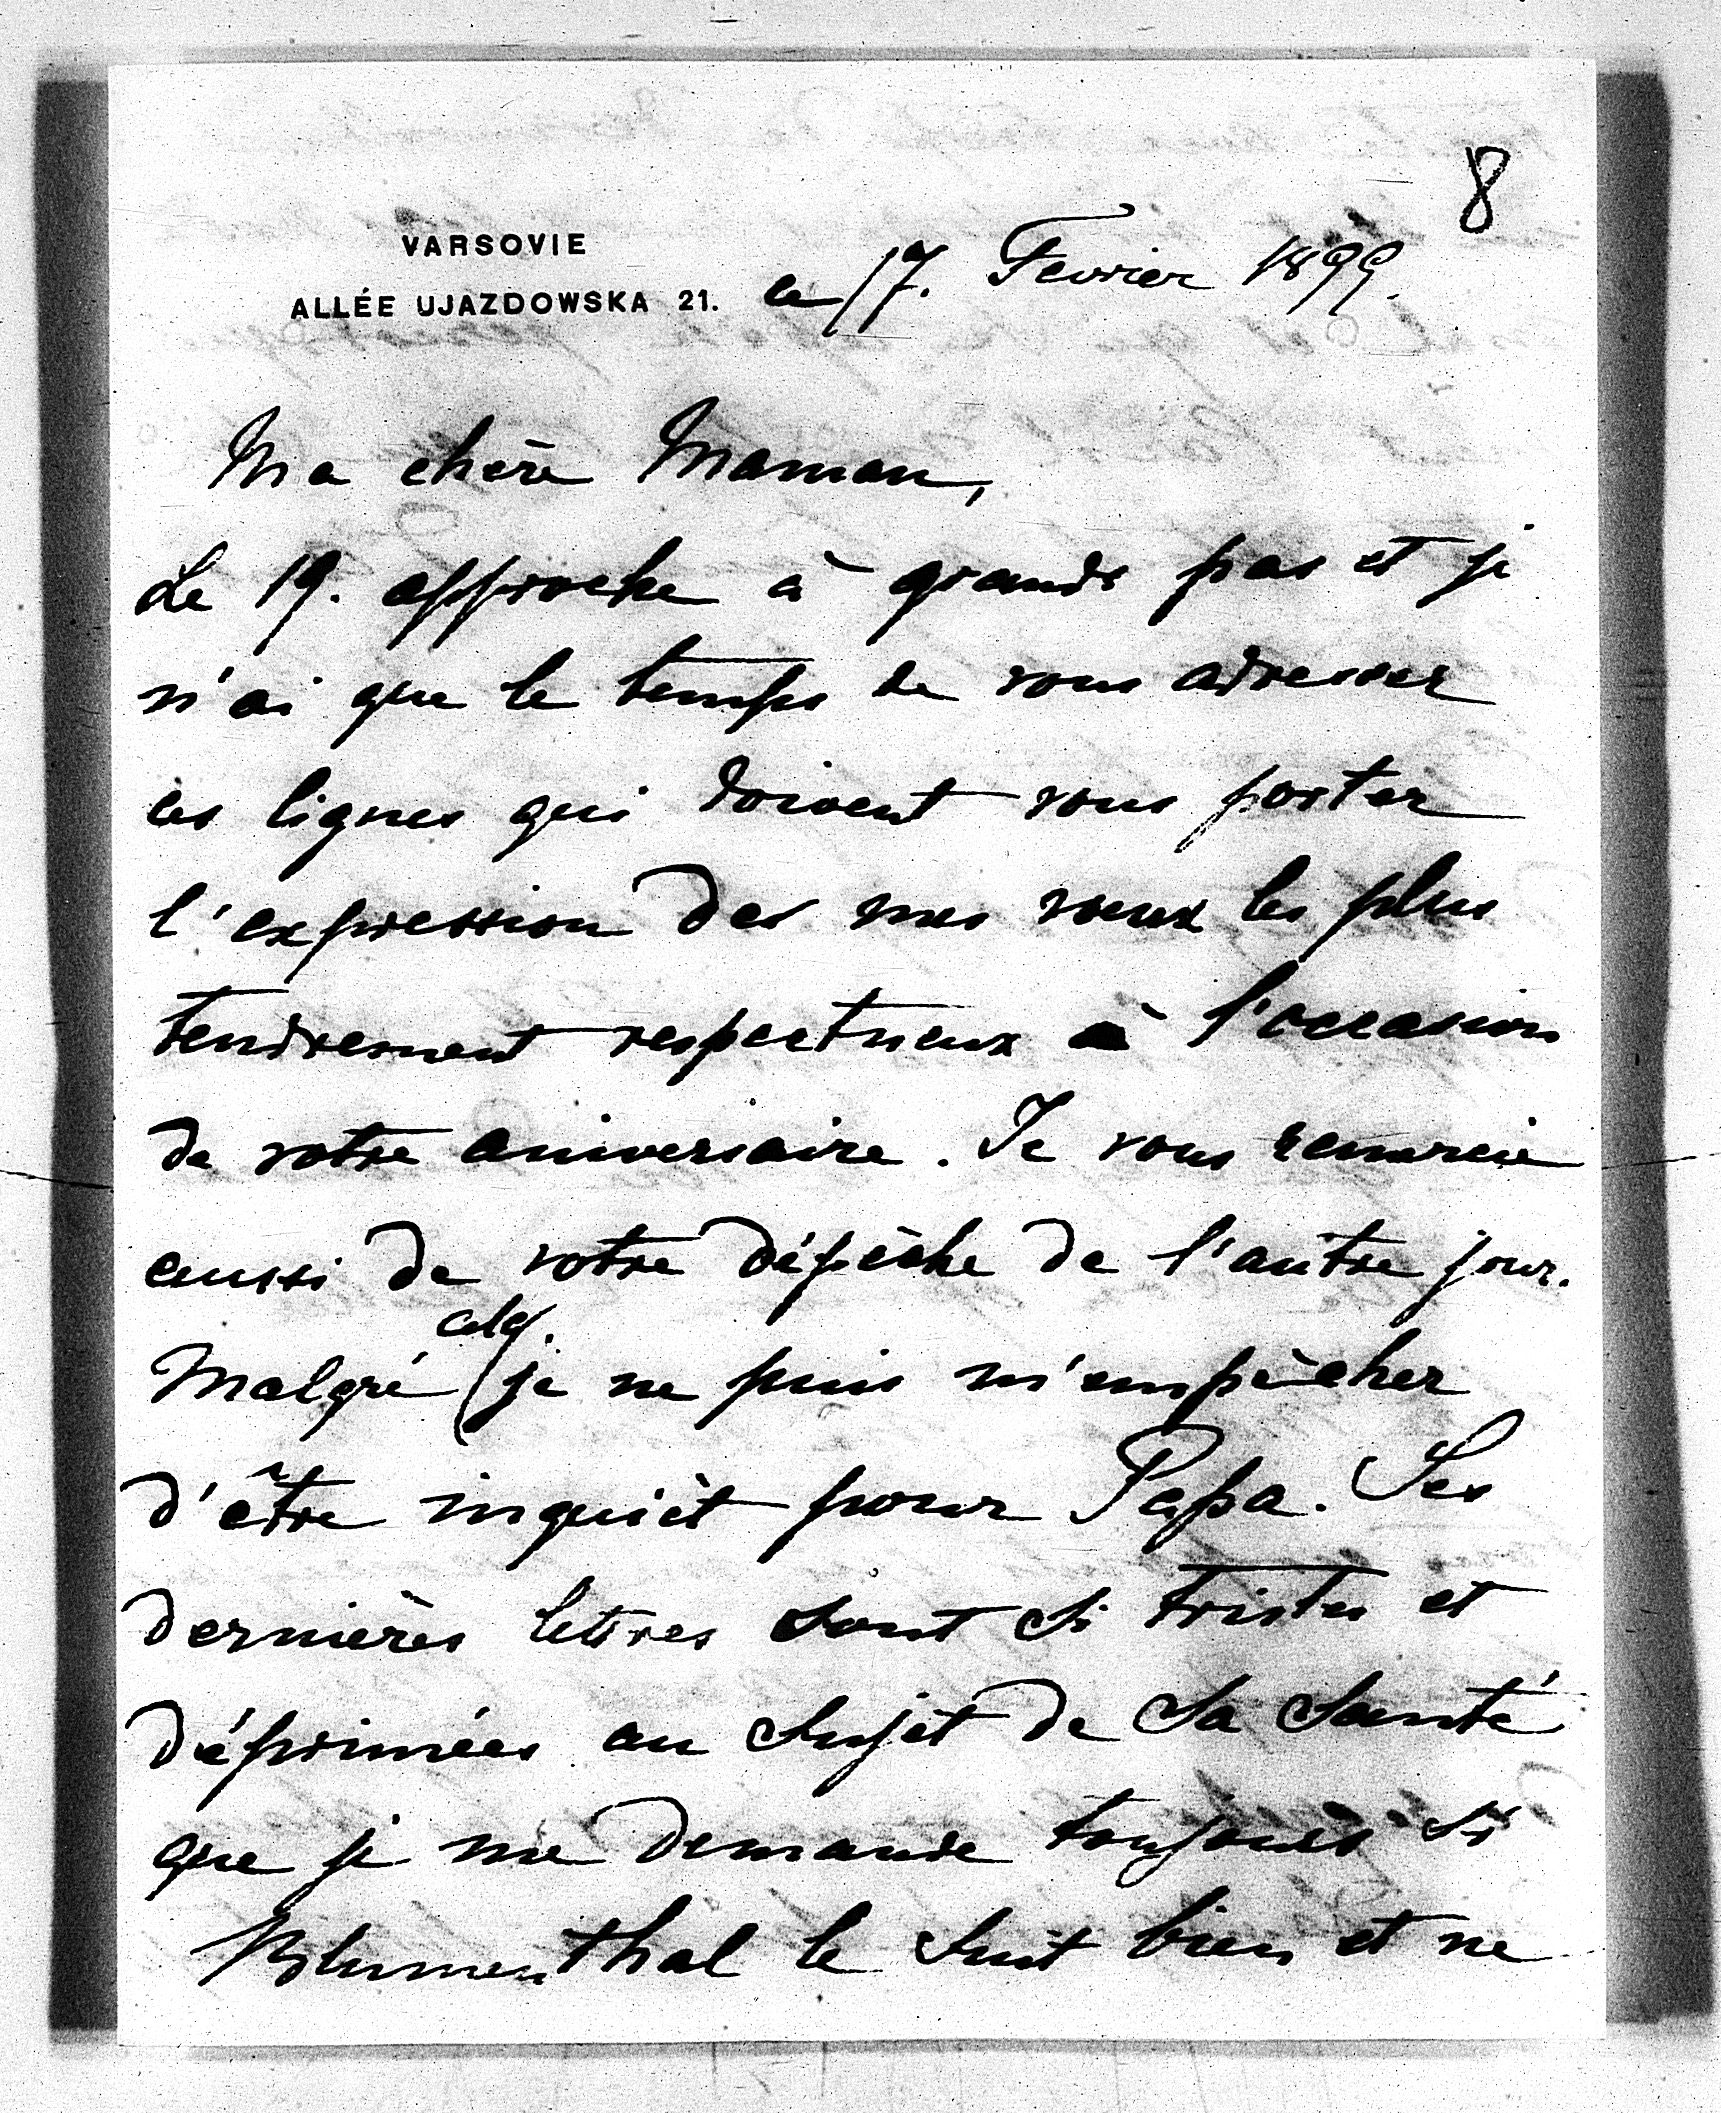 8
VARSOVIE
ALLÉE UJAZDOWSKA 21.
ce 17. Fevrier 1899.
Ma chère Maman,
Le 19. approche à grands pas et je
n'ai que le temps de vous adresser
ces lignes qui doivent vous porter
l'expression des mes voeux les plus
tendrement respectueux à l'occasion
de votre aniversaire. Je vous remercie
aussi de votre dépèche de l'autre jour.
cela.
Malgré je ne puis m'empècher
d'être inquièt pour Papa. Ses
dernières lettres sont si tristes et
déprimées au sujèt de sa santé
que je me demande toujours si
Blumenthal le suit bien et ne